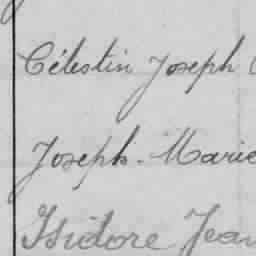 Célestin Joseph
Joseph-Marie
Isidore Jean